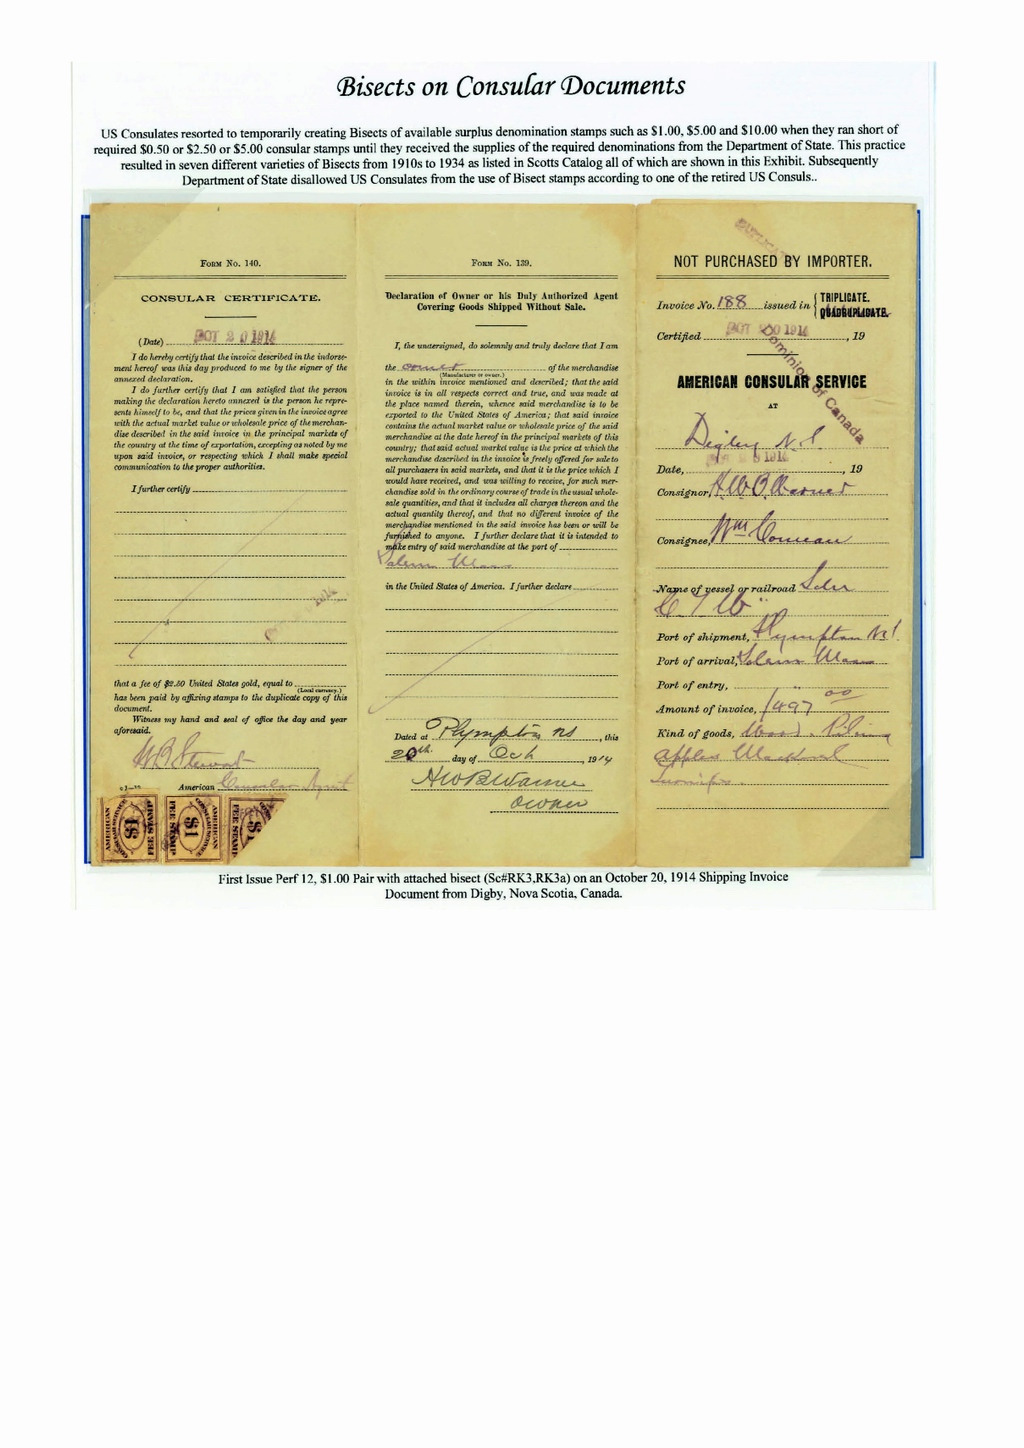 Bisects on Consular Documents
US Consulates resorted to temporarily creating Bisects of available surplus denomination stamps such as $1.00, $5.00 and $10.00 when they ran short of
required $0.50 or $2.50 or $5.00 consular stamps until they received the supplies of the required denominations from the Department of State. This practice
resulted in seven different varieties of Bisects from 1910s to 1934 as listed in Scotts Catalog all of which are shown in this Exhibit. Subsequently
Department of State disallowed US Consulates from the use of Bisect stamps according to one of the retired US Consuls..
FORM NO. 140.
CONSULAR CERTIFICATE.
(Date) OCT 20 1914
I do hereby certify that the invoice described in the indorse-
ment hereof was this day produced to me by the signer of the
annexed declaration.
I do further certify that I am satisfied that the person
making the declaration hereto annexed is the person he repre-
sents himself to be, and that the prices given in the invoice agree
with the actual market value or wholesale price of the merchan-
dise described in the said invoice in the principal markets of
the country at the time of exportation, excepting as noted by me
upon said invoice, or respecting which I shall make special
communication to the proper authorities.
I further certify
1914
that a fee of $2.50 United States gold, equal to
(Local currency.)
has been paid by affixing stamps to the duplicate copy of this
document.
Witness my hand and seal of office the day and year
aforesaid.
W B Stewart
American Consular Agent
AMERICAN CONSULAR SERVICE $1 FEE STAMP
AMERICAN CONSULAR SERVICE $1 FEE STAMP
$1 FEE STAMP
FORM NO. 139.
Declaration of Owner or his Duly Authorized Agent
Covering Goods Shipped Without Sale.
I, the undersigned, do solemnly and truly declare that I am
the owner of the merchandise
(Manufacturer or owner.)
in the within invoice mentioned and described; that the said
invoice is in all respects correct and true, and was made at
the place named therein, whence said merchandise is to be
exported to the United States of America; that said invoice
contains the actual market value or wholesale price of the said
merchandise at the date hereof in the principal markets of this
country; that said actual market value is the price at which the
merchandise described in the invoice is freely offered for sale to
all purchasers in said markets, and that it is the price which I
would have received, and was willing to receive, for such mer-
chandise sold in the ordinary course of trade in the usual whole-
sale quantities, and that it includes all charges thereon and the
actual quantity thereof, and that no different invoice of the
merchandise mentioned in the said invoice has been or will be
furnished to anyone. I further declare that it is intended to
make entry of said merchandise at the port of
Salem Mass
in the United States of America. I further declare
Dated at Plympton NS, this
20th day of Oct, 1914
H W B Warner
owner
NOT PURCHASED BY IMPORTER.
Invoice No. 188 issued in { TRIPLICATE.
QUADRUPLICATE.
Certified OCT 20 1914, 19
Dominion of Canada
AMERICAN CONSULAR SERVICE
AT
Digby N.S
Date, 1914, 19
Consignor, H W B Warner
Consignee, Wm Comeau
Name of vessel or railroad Schr
Port of shipment, Plympton NS.
Port of arrival, Salem Mass
Port of entry, "
Amount of invoice, 1497 00
Kind of goods, Wood. Piling
apples Mackerel
Turnips.
First Issue Perf 12, $1.00 Pair with attached bisect (Sc#RK3,RK3a) on an October 20, 1914 Shipping Invoice
Document from Digby, Nova Scotia, Canada.